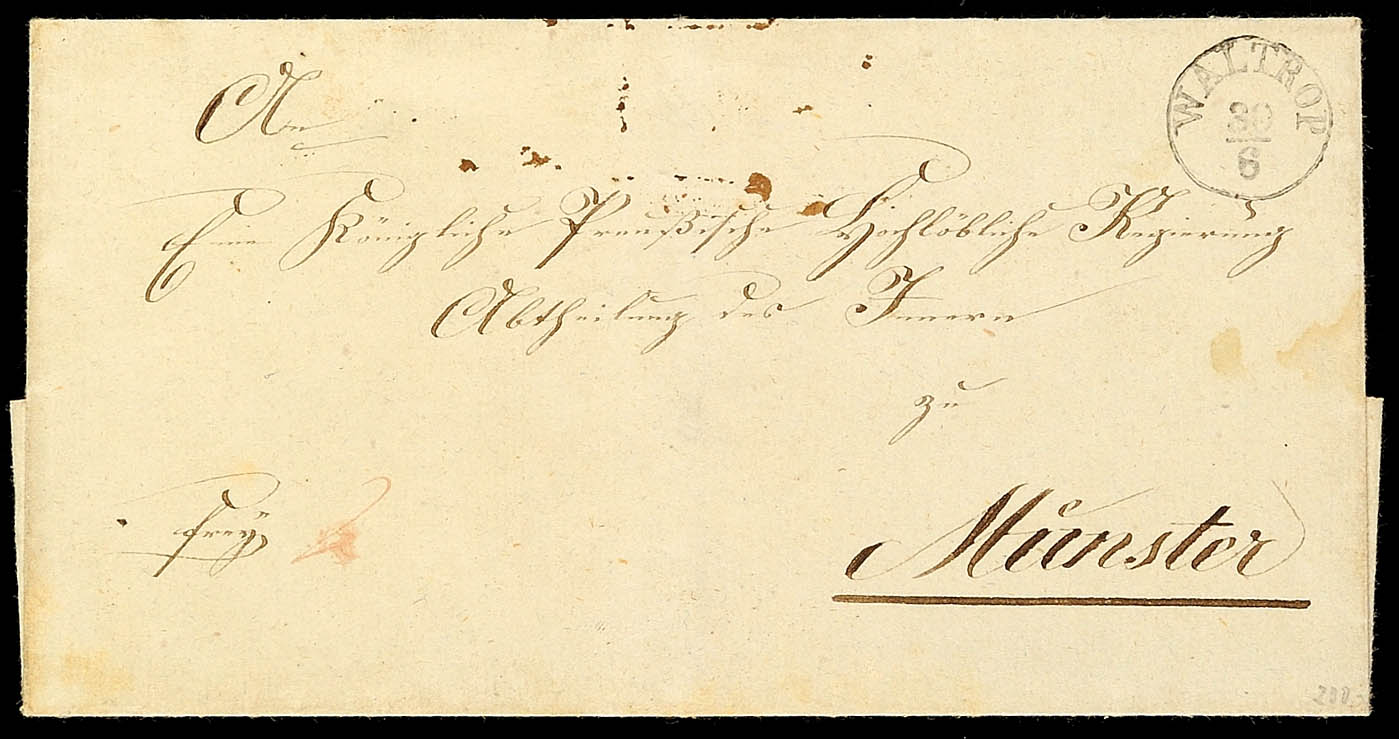 WALTROP
30
6
An
Eine Königliche Preußische Hochlöbliche Regierung
Abtheilung des Innern
zu
frey
Münster